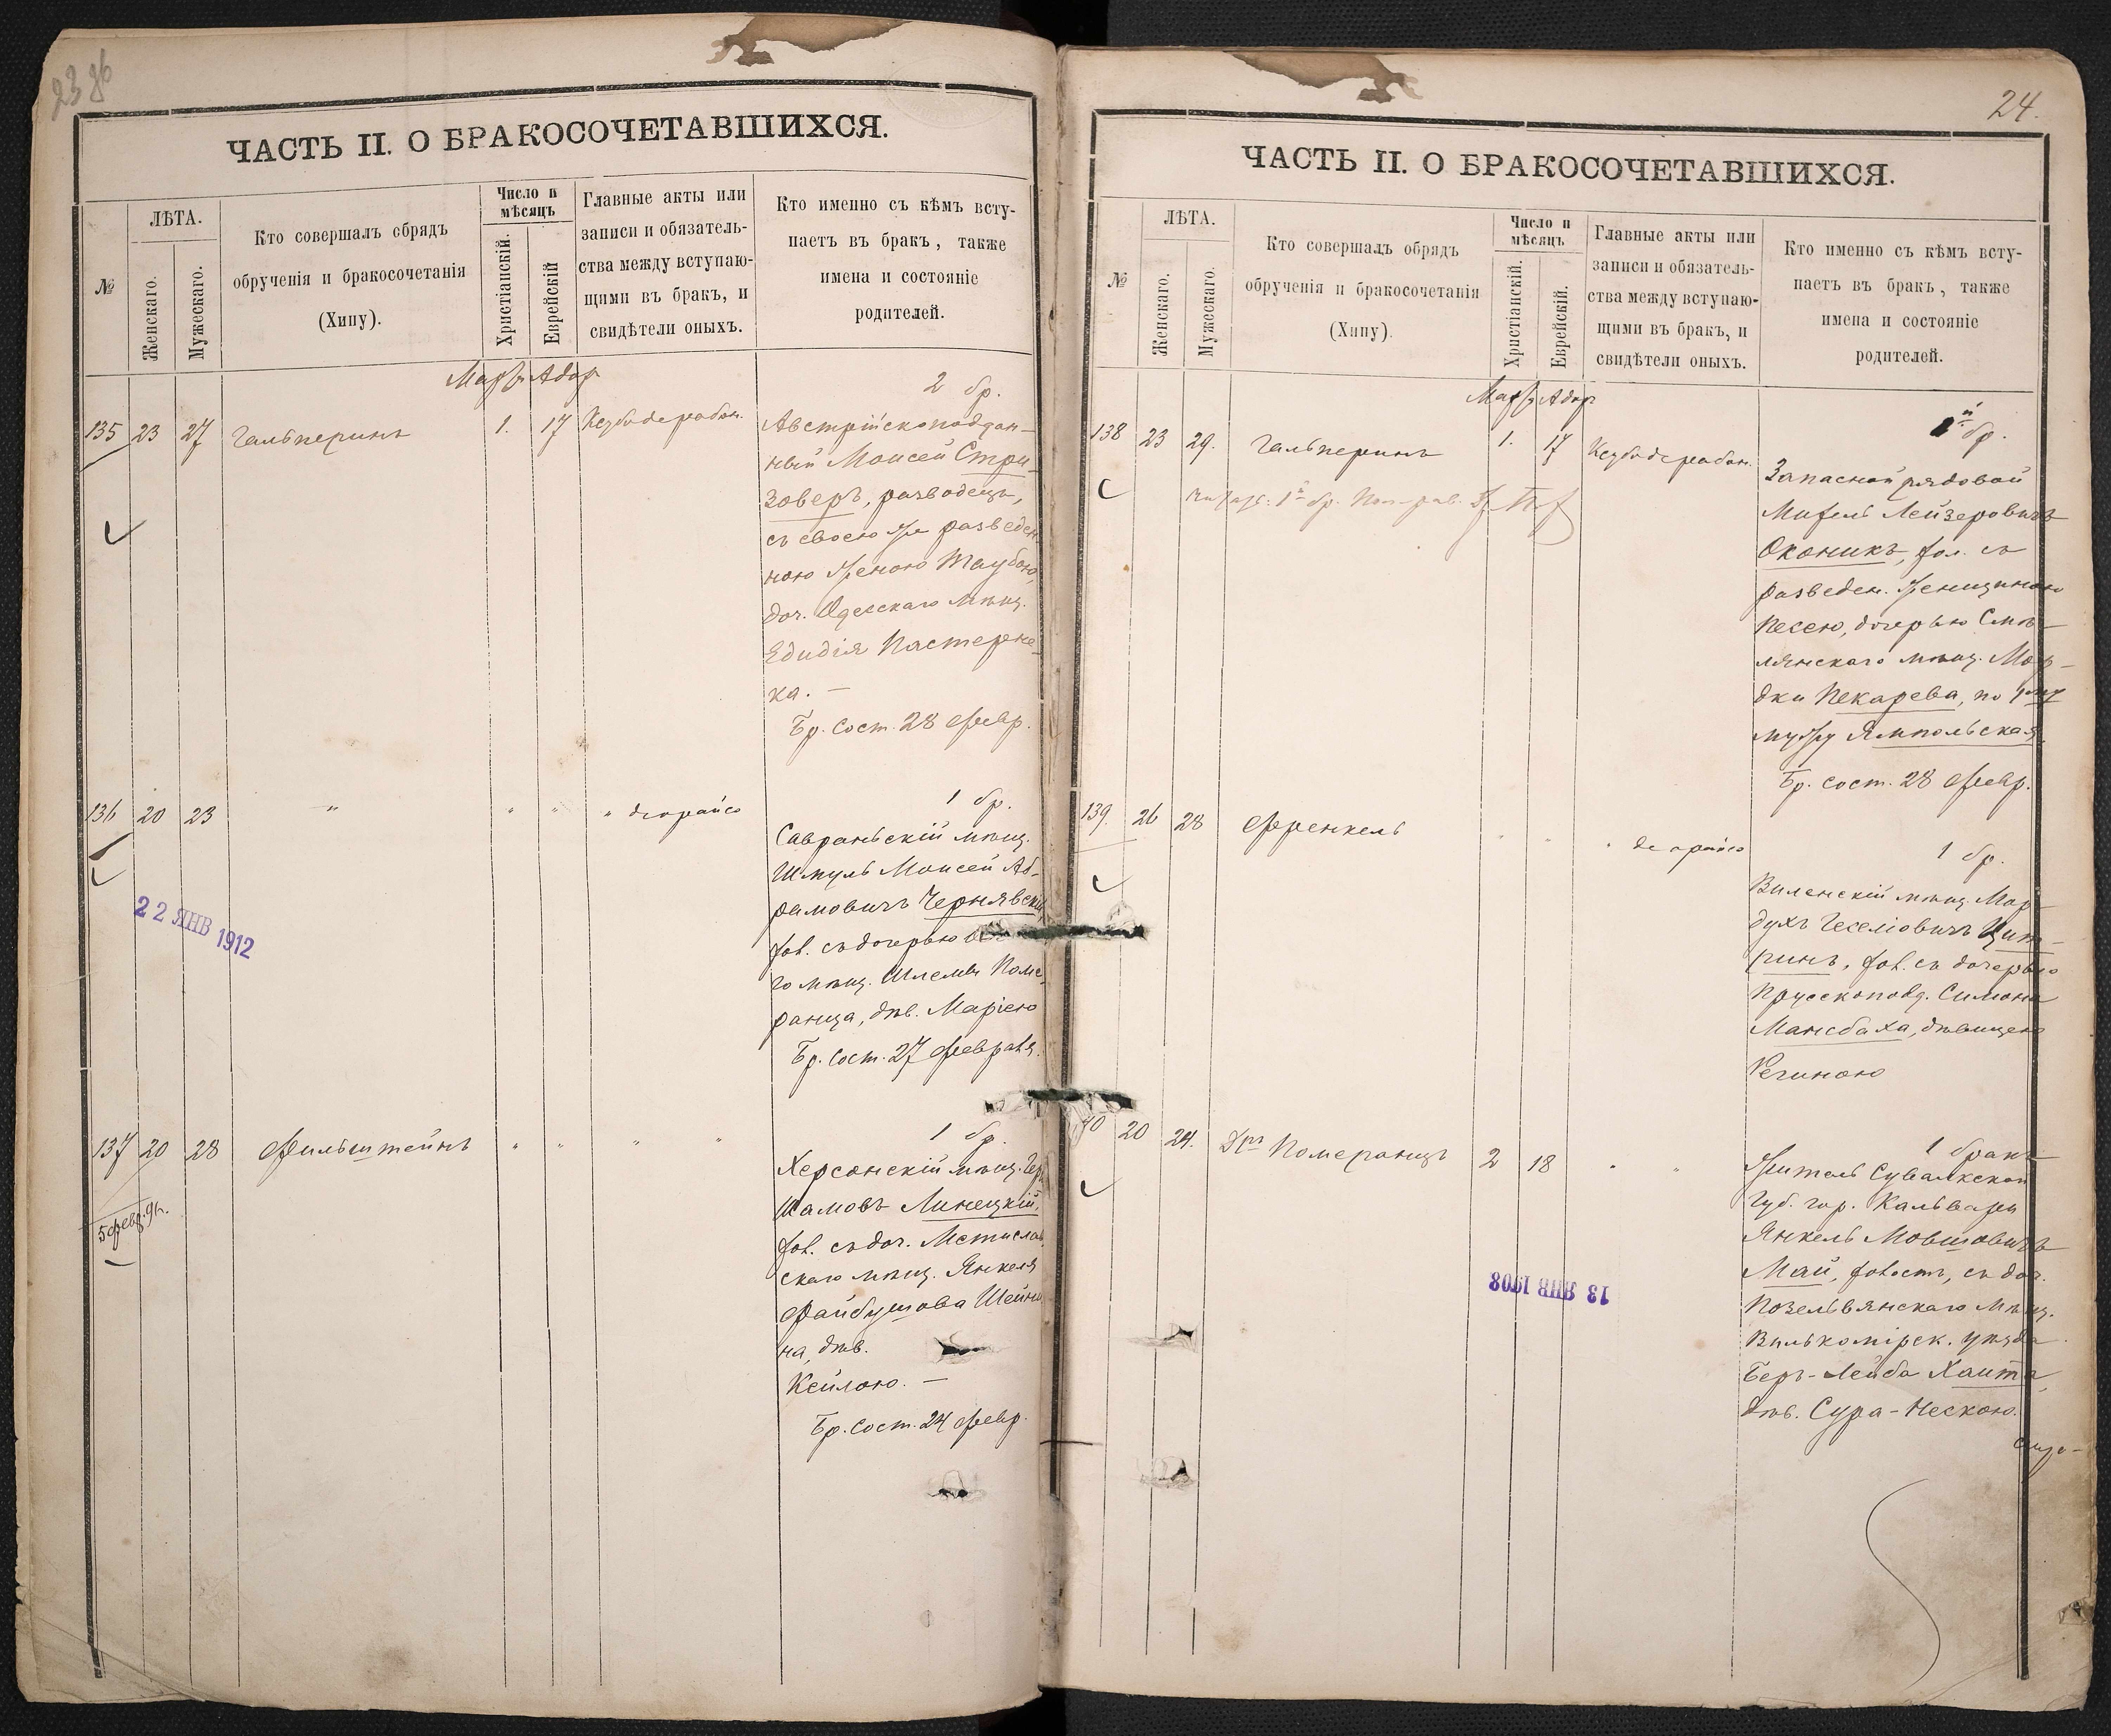 23 об
ЧАСТЬ II. О БРАКОСОЧЕТАВШИХСЯ.
№
ЛѢТА.
Женскаго.
Мужескаго.
Кто совершалъ обрядъ
обрученія и бракосочетанія
(Хипу).
Число и
мѣсяцъ
Христіанскій.
Еврейскій
Главные акты или
записи и обязатель-
ства между вступаю-
щими въ бракъ, и
свидѣтели оныхъ.
Кто именно съ кѣмъ всту-
паетъ въ бракъ, также
имена и состояніе
родителей.
Мартъ Адар
135 23 27 Гальперинъ 1. 17
2 бр.
Австрійскоподдан-
ный Моисей Стри-
зоверъ, разводецъ,
съ своею же разведен
ною женою Таубою,
доч. Одесскаго мѣщ.
Едидія Пастерна-
ка. —
Бр. сост. 28 февр.
136 20 23 " " " "
1 бр.
Савраньскій мѣщ.
Шмуль Моисей Аб-
рамовичъ Чернявскій
хол. съ дочерью
го мѣщ. Шлемы Поме-
ранца, дѣв. Маріею
Бр. сост. 27 февраля.
22 ЯНВ 1912
137 20 28 Фильштейнъ " " " "
5 февр. 91.
1 бр.
Херсонскій мѣщ. Гер
шамовъ Линецкій,
хол. съ доч. Мстислав
скаго мѣщ. Янкеля
Файбушова Шейни
на, дѣв.
Кейлою. —
Бр. сост. 24 февр.
24.
ЧАСТЬ II. О БРАКОСОЧЕТАВШИХСЯ.
№
ЛѢТА.
Женскаго.
Мужескаго.
Кто совершалъ обрядъ
обрученія и бракосочетанія
(Хипу).
Число и
мѣсяцъ
Христіанскій.
Еврейскій.
Главные акты или
записи и обязатель-
ства между вступаю-
щими въ бракъ, и
свидѣтели оныхъ.
Кто именно съ кѣмъ всту-
паетъ въ бракъ, также
имена и состояніе
родителей.
Мартъ Адар
138 23 29. Гальперинъ 1. 17
1й бр.
Запасной рядовой
Михель Лейзеровичъ
Оконикъ, хол. съ
разведен. женщиною
Песею, дочерью Смѣ-
лянскаго мѣщ. Мор-
дки Пекарева, по 1му
мужу Ямпольская.
Бр. сост. 28 февр.
139. 26 28 Френкель " "
1 бр.
Виленскій мѣщ. Мор-
духъ Геселіовичъ Цит-
ринъ, хол. съ дочерью
Прусскоподд. Симона
Мансбаха, дѣвицею
Региною
40 20 24. Померанцъ 2 18 " "
1 бракъ
Житель Сувалкской
Губ. гор. Кальвари
Янкель Мовшовичъ
Май, холост, съ доч.
Позельвянскаго Мѣщ.
Вилькомірск. уѣзда
Беръ-Лейба Хаита,
дѣв. Сура-Нескою.
13 ЯНВ 1908